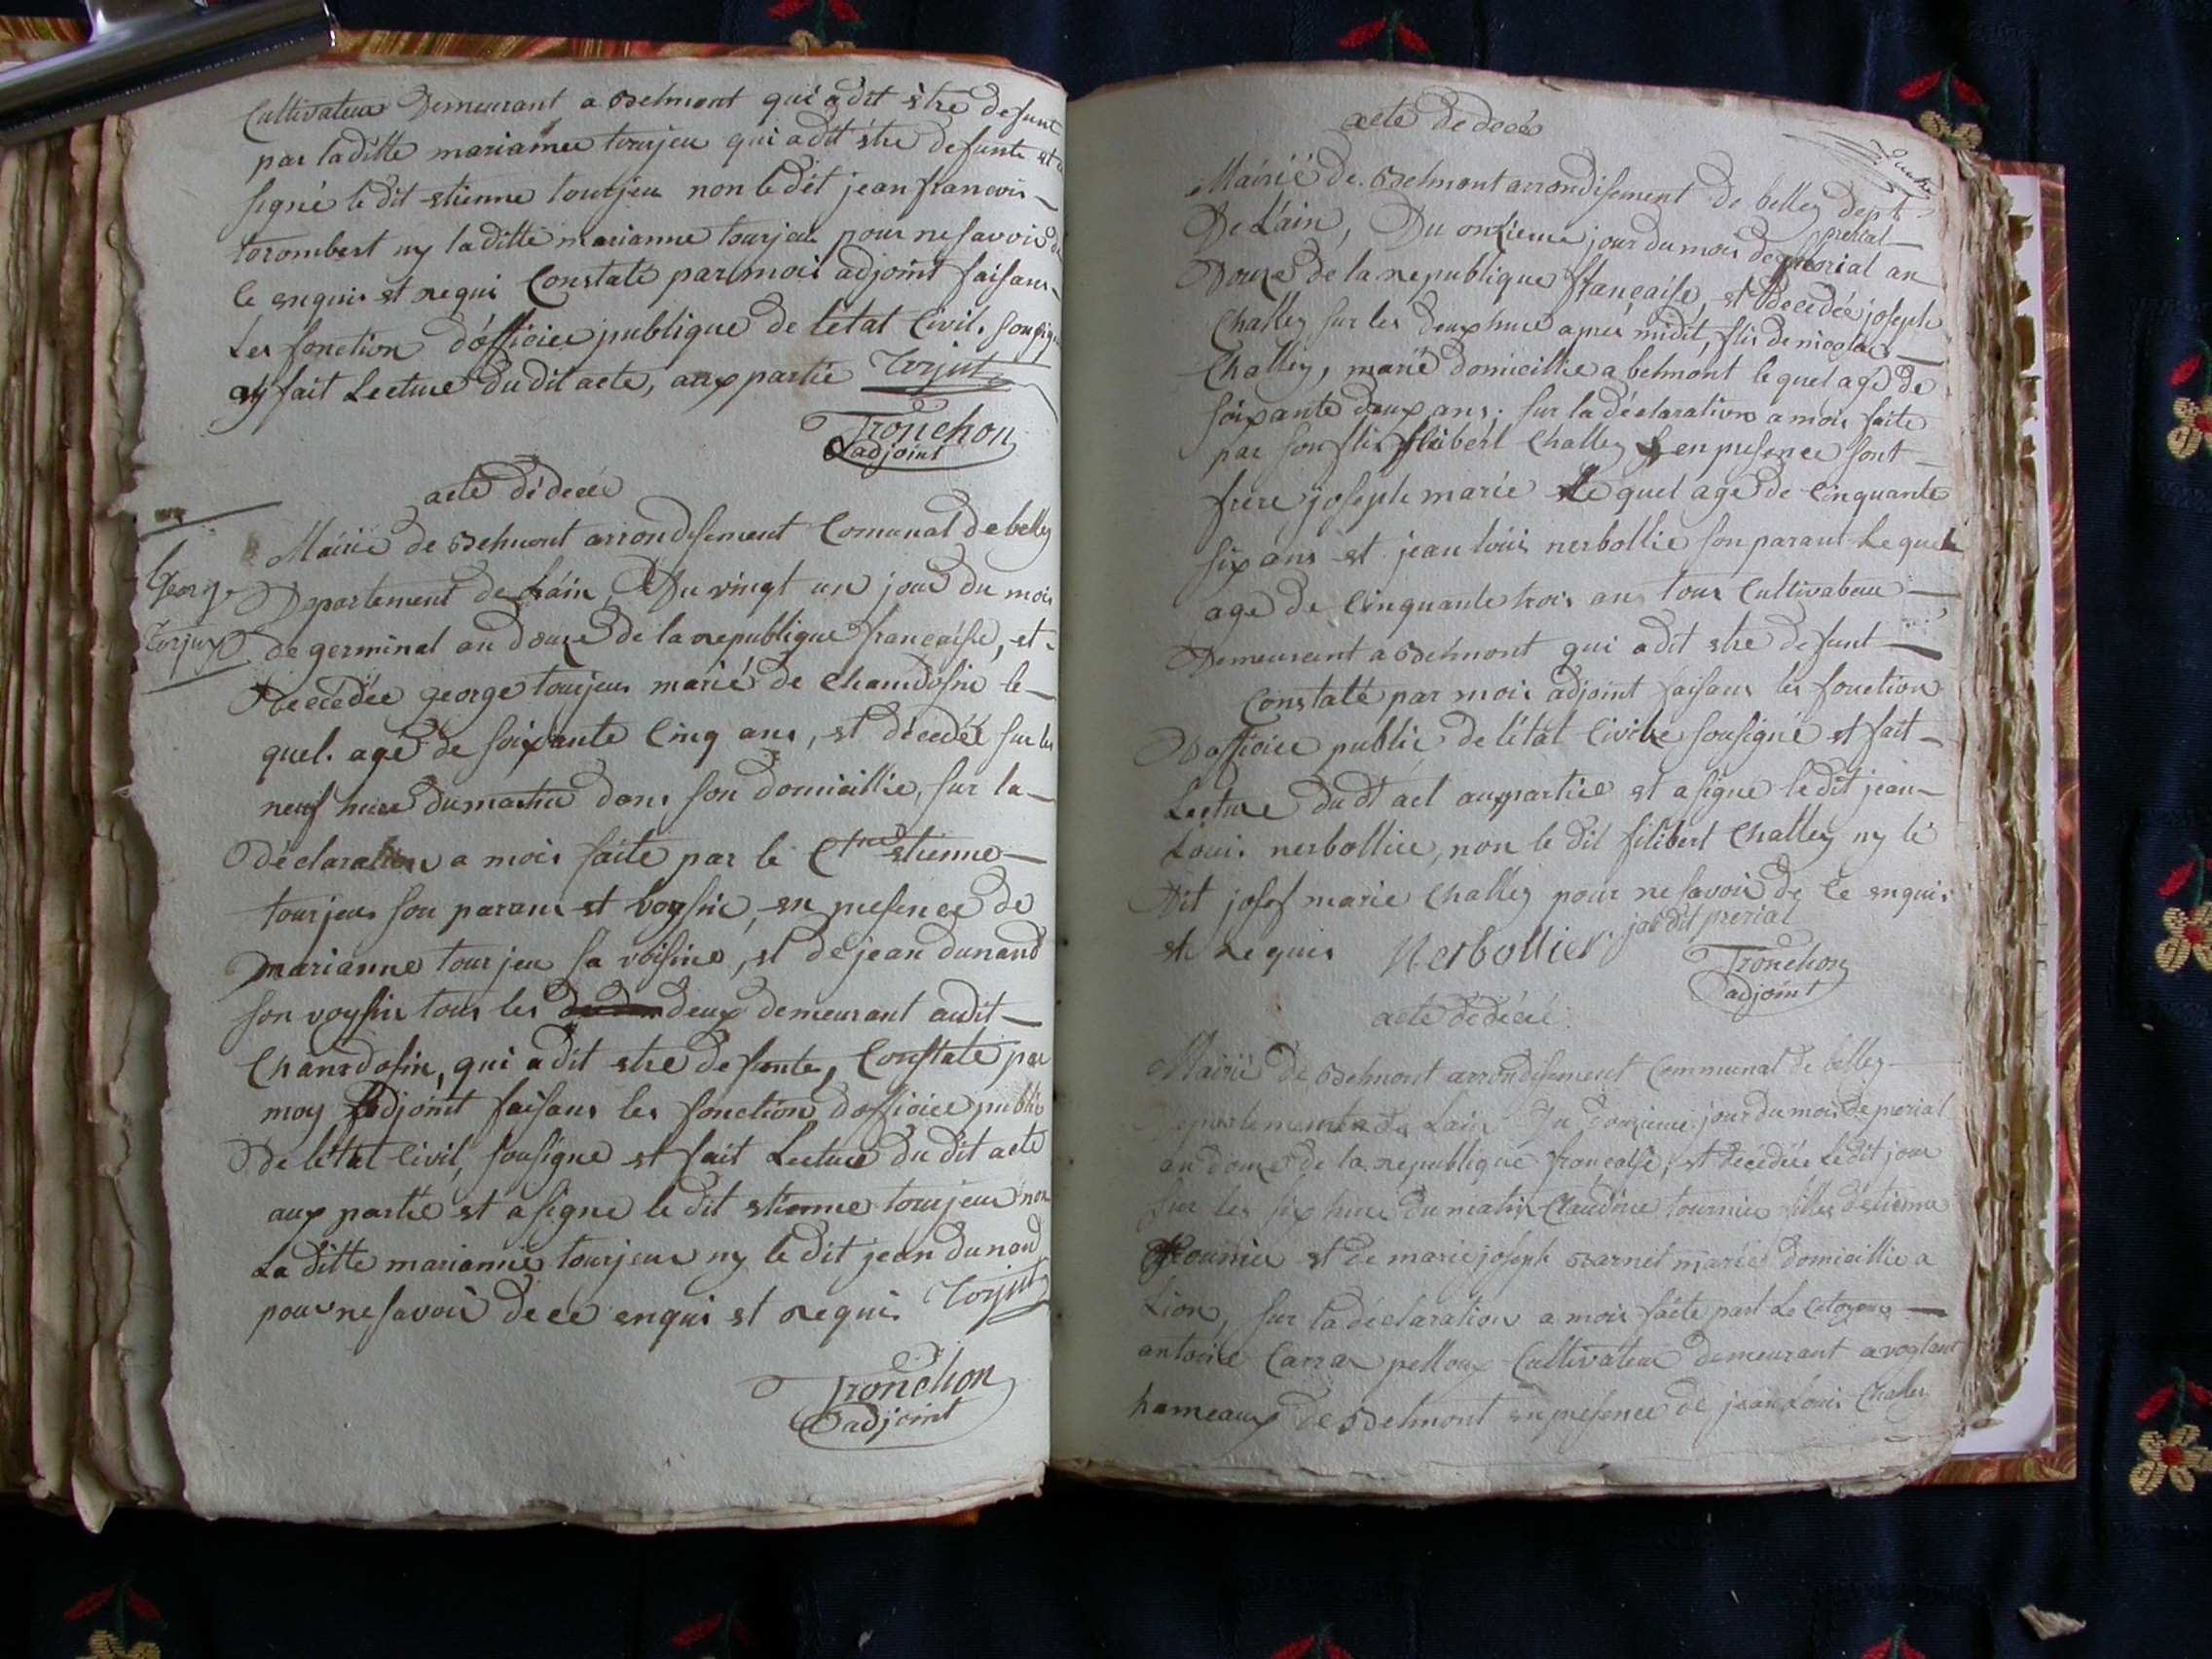 Cultivateur Demeurant a Belmont qui a dit être defunt
par laditte marianne tourjeu qui a dit stre defunte et a
signé le dit stienne tourjeu non le dit jean francois
trombert ny la ditte marianne tourjeu pour ne savoir de
ce enquis et requis Constaté par mois adjoint faisans
Les fonction d'officier publique de l'état Civil. sousigné
ay fait Lecture du dit acte, aux partie Torjut
Tronchon
adjoint
acte dé decé
Mairie de Belmont arrondisement Comunal de belley
George
Torjux
Departement de L'áin, Du vingt un jour du mois
de germinal an douze de la republique francaise, et
decédée george tourjeu marié de Chamdosin le
quel. agé de soixante Cinq ans, st décédée sur les
neuf hure du matin dans son domicillie, sur la
déclaration a mois faite par le Ctoyen stienne
tourjeu son parans st voysin, en presence de
marianne tourjeu sa voisine, st de jean dunand
son voysin tous les deux demeurant audit
Chamdosin, qui a dit stre defunte, Constaté par
moy adjoint faisans les fonction d'officier public
De l'état Civil, sousigne st fait Lecture du dit acte
aux partie st a signe le dit stienne tourjeu non
La ditte marianne tourjeu ny le dit jean dunand
pour ne savoir de ce enqui st requi. Torjut
Tronchon
adjoint
acte de decé
Mairié de Belmont arrondisement de belley dept
De L'ain, Du onzieme jour du mois de prerial an
prerial
Douze de la republique française, st decedée joseph
Challey sur les deux hure apres midit, flis de nicolas
Challey, marié domicillie a belmont le quel agé de
soixante deux ans. sur la déclaration a mois faite
par son flis flibert Challey & en presence sont
frère joseph marie Le quel age de Cinquante
six ans st jean louis nerbollie son parant Le quel
age de Cinquante trois ans tous Cultivateur
Demeurant a Belmont qui a dit stre defunt
Constaté par mois adjoint faisans les fonction
D'officier public de l'état Civile sousigné st fait
Lecture dudt act aux partiee st a signe le dit jean
Louis nerbollier, non le dit filibert Challey ny le
Dit josef marie Challey pour ne savoir de Ce enquis
st requis Nerbollier. jai dit prerial
Tronchon
adjoint
acte dé décé
Mairié de Belmont arrondisement Communal de belley
Departement de Lain Du douzieme jour du mois de prerial
an douze de la republique françoise, st décédée Ledit jour
sur les six hure du matin Claudine tournier filles d'stienne
tournier st de marie joseph Carnet mariée domicillie a
Lion, sur la déclaration a mois faite part Le Citoyens
antoine Carra pelloux Cultivateur demeurant a voglant
hameaux de Belmont en presence de jean Louis Challey